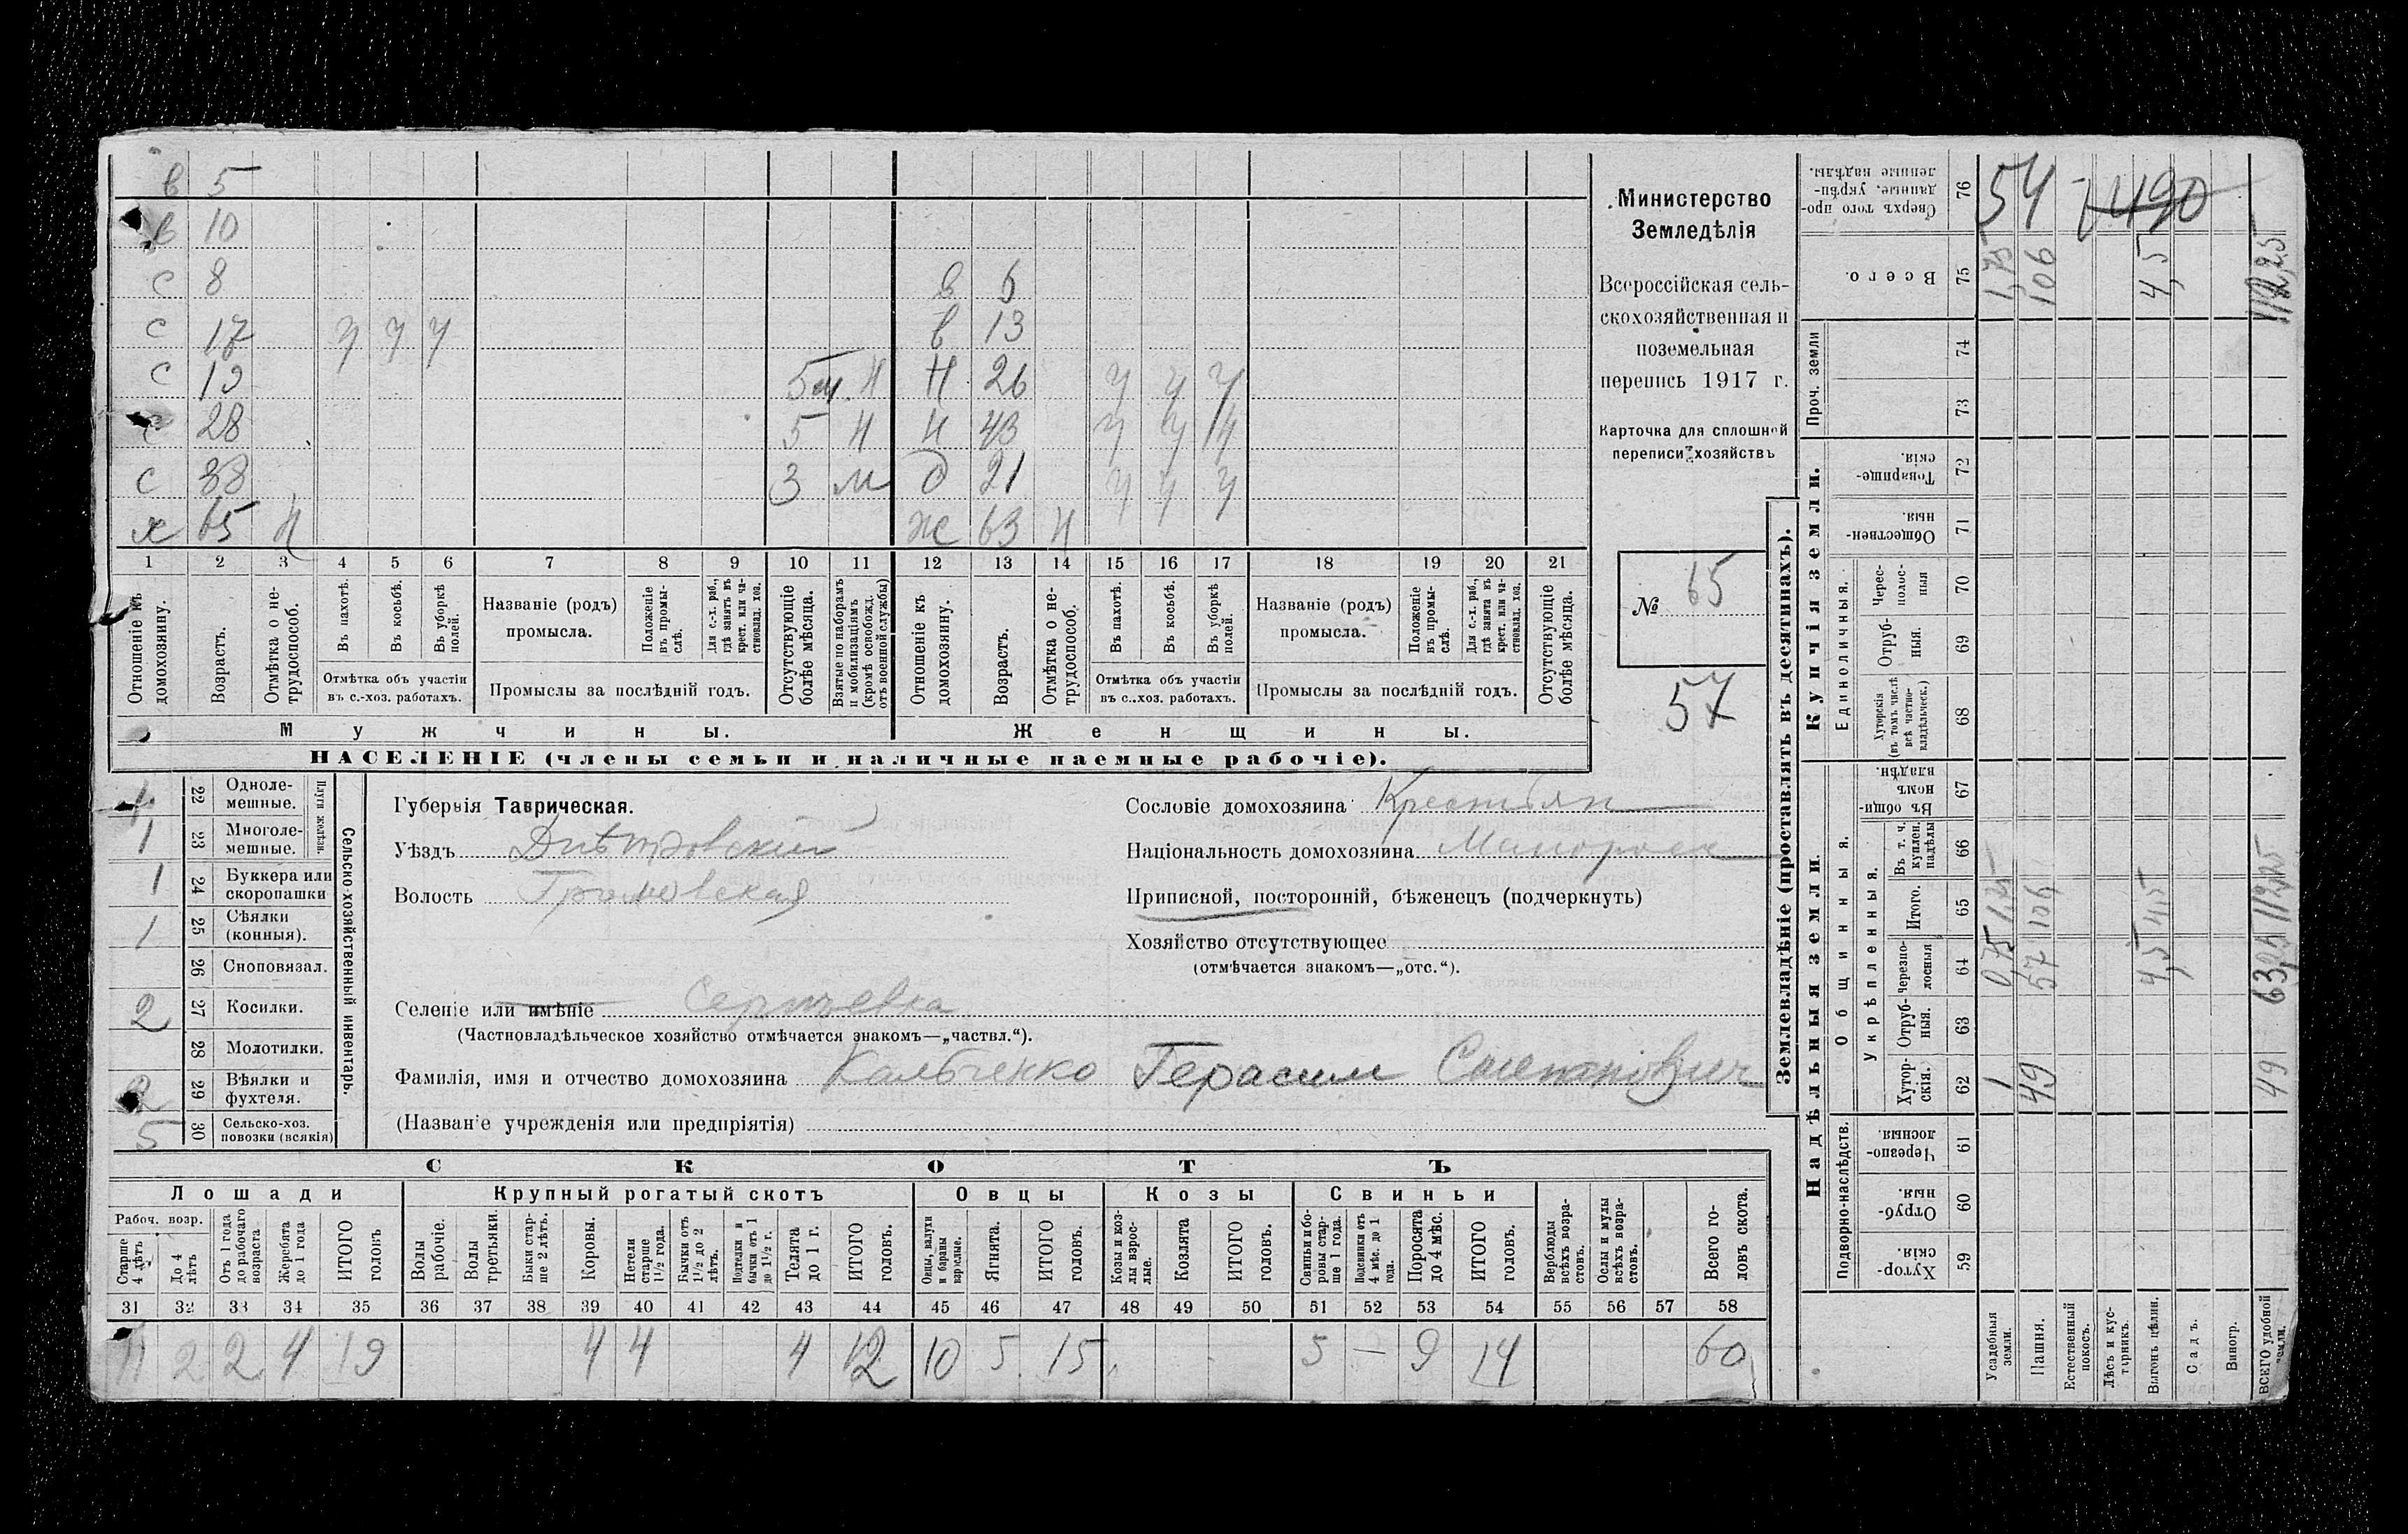 в 5
в 10
с 8 в 6
с 17 у у у в 13
с 19 5 м. Н Н 26 у у у
с 28 5 Н Н 43 у у у
с 38 3 м д 21 у у у
х 65 Н ж 63 Н
1 2 3 4 5 6 7 8 9 10 11 12 13 14 15 16 17 18 19 20 21
Отношеніе къ домохозяину.
Возрастъ.
Отмѣтка о нетрудоспособ.
Въ пахотѣ.
Въ косьбѣ.
Въ уборкѣ полей.
Отмѣтка объ участіи въ с.-хоз. работахъ.
Названіе (родъ) промысла.
Положеніе въ промыслѣ.
Для с.-х. раб., гдѣ занятъ въ крест. или частновлад. хоз.
Промыслы за послѣдній годъ.
Отсутствующіе болѣе мѣсяца.
Взятые по наборамъ и мобилизаціямъ (кромѣ освобожд. отъ военной службы)
Отношеніе къ домохозяину.
Возрастъ.
Отмѣтка о нетрудоспособ.
Въ пахотѣ.
Въ косьбѣ.
Въ уборкѣ полей.
Отмѣтка объ участіи въ с..хоз. работахъ.
Названіе (родъ) промысла.
Положеніе въ промыслѣ.
Для с.-х. раб., гдѣ занята въ крест. или частновлад. хоз.
Промыслы за послѣдній годъ.
Отсутствующіе болѣе мѣсяца.
Мужчины. Женщины.
НАСЕЛЕНІЕ (члены семьи и наличные наемные рабочіе).
Министерство
Земледѣлія
Всероссійская сель-
скохозяйственная и
поземельная
перепись 1917 г.
Карточка для сплошной
переписи хозяйствъ
№ 65
57
Сельско-хозяйственный инвентарь.
Плуги желѣзн.
22 Однолемешные.
1 23 Многолемешные.
1 24 Буккера или скоропашки
1 25 Сѣялки (конныя).
26 Сноповязал.
2 27 Косилки.
28 Молотилки.
2 29 Вѣялки и фухтеля.
5 30 Сельско-хоз. повозки (всякія)
Губернія Таврическая.
Уѣздъ Днѣпровскій
Волость Громовская
Селеніе или имѣніе Сергѣевка
(Частновладѣльческое хозяйство отмѣчается знакомъ—„частвл.“).
Фамилія, имя и отчество домохозяина Кальченко Герасим
(Названіе учрежденія или предпріятія)
Сословіе домохозяина Крестьян
Національность домохозяина Малоросс
Приписной, посторонній, бѣженецъ (подчеркнуть)
Хозяйство отсутствующее
(отмѣчается знакомъ—„отс.“).
СКОТЪ
Лошади Крупный рогатый скотъ Овцы Козы Свиньи
Рабоч. возр.
Старше 4 лѣтъ
До 4 лѣтъ
Отъ 1 года до рабочаго возраста.
Жеребята до 1 года
ИТОГО головъ
Волы рабочіе.
Волы третьяки.
Быки старше 2 лѣтъ.
Коровы.
Нетели старше 1½ года.
Бычки отъ 1½ до 2 лѣтъ.
Подтелки и бычки отъ 1 до 1½ г.
Телята до 1 г.
ИТОГО головъ.
Овцы, валухи и бараны взрослые.
Ягнята.
ИТОГО головъ.
Козы и козлы взрослые.
Козлята
ИТОГО головъ.
Свиньи и боровы старше 1 года.
Подсвинки отъ 4 мѣс. до 1 года.
Поросята до 4 мѣс.
ИТОГО головъ.
Верблюды всѣхъ возрастовъ.
Ослы и мулы всѣхъ возрастовъ.
Всего головъ скота.
31 32 33 34 35 36 37 38 39 40 41 42 43 44 45 46 47 48 49 50 51 52 53 54 55 56 57 58
11 2 2 4 19 4 4 4 12 10 5 15 5 — 9 14 60
Землевладѣніе (проставлять въ десятинахъ).
Купчія земли.
Надѣльныя земли.
Сверхъ того проданные, укрѣпленные надѣлы. 76 54 490
Всего. 75 1,75 106 4,5 112,25
Проч. земли 74
73
Товарищескія. 72
Общественныя. 71
Единоличныя.
Чересполосныя 70
Отрубныя. 69
Хуторскія (въ томъ числѣ всѣ частновладѣльческ.) 68
Общинныя.
Въ общинномъ владѣн. 67
Укрѣпленныя.
Въ т. ч. куплен. надѣлы 66
Итого. 65 106 4,5 112,25
Черезполосныя 64 0,75 57 4,5
Отрубныя. 63
Хуторскія. 62 1 49 49
Подворно-наслѣдств.
Черезполосныя. 61
Отрубныя. 60
Хуторскія. 59
Усадебныя земли.
Пашня.
Естественный покосъ.
Лѣсъ и кустарникъ.
Выгонъ цѣлин.
Садъ.
Виногр.
ВСЕГО удобной земли.